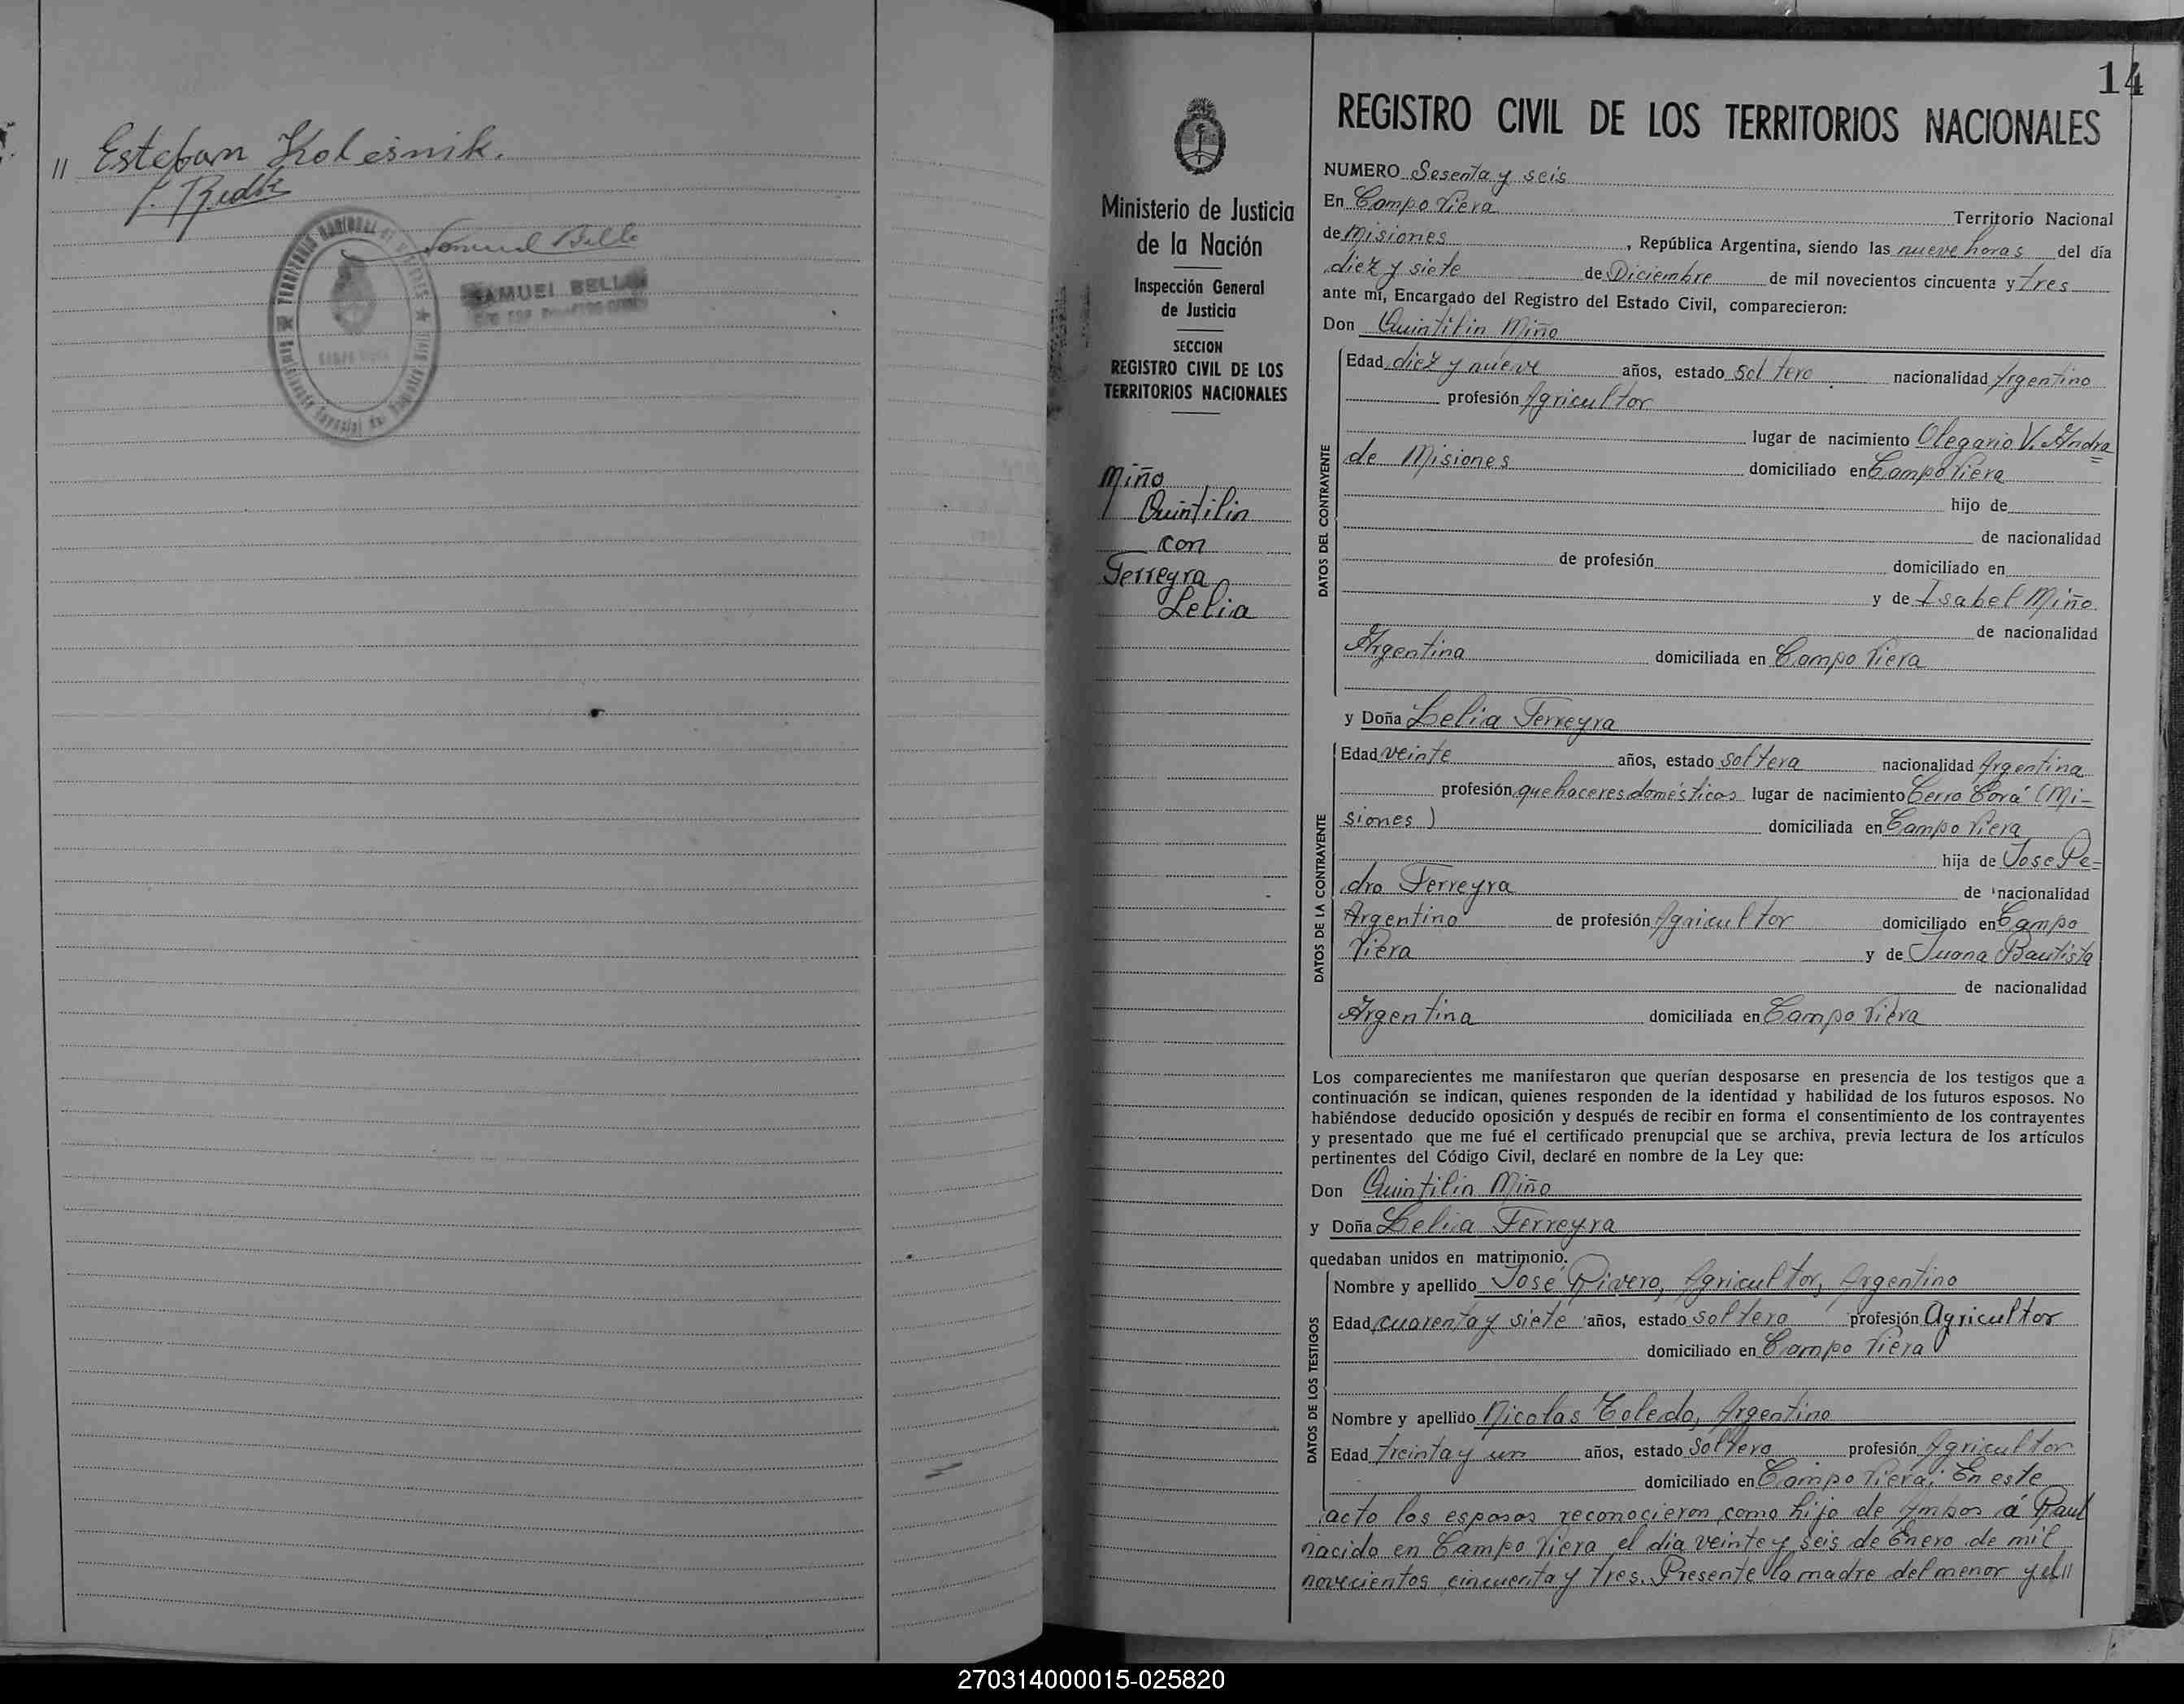 " Esteban Kolesnik.
SAMUEL BELLO
14
REGISTRO CIVIL DE LOS TERRITORIOS NACIONALES
Ministerio de Justicia
de la Nación
Inspección General
de Justicia
SECCION
REGISTRO CIVIL DE LOS
TERRITORIOS NACIONALES
Miño
Quintilin
con
Ferreyra
Lelia
NUMERO Sesenta y seis
En Campo Viera Territorio Nacional
de Misiones, República Argentina, siendo las nueve horas del día
diez y siete de Diciembre de mil novecientos cincuenta y tres
ante mí, Encargado del Registro del Estado Civil, comparecieron:
Don Quintilin Miño
DATOS DEL CONTRAYENTE
Edad diez y nueve años, estado soltero nacionalidad Argentino
profesión Agricultor
lugar de nacimiento Olegario V. Andra=
de Misiones domiciliado en Campo Viera
hijo de
de nacionalidad
de profesión domiciliado en
y de Isabel Miño
de nacionalidad
Argentina domiciliada en Campo Viera
y Doña Lelia Ferreyra
DATOS DE LA CONTRAYENTE
Edad veinte años, estado soltera nacionalidad Argentina
profesión quehaceres domésticos lugar de nacimiento Cerro Corá (Mi-
siones) domiciliada en Campo Viera
hija de Jose Pe=
dro Ferreyra de nacionalidad
Argentino de profesión Agricultor domiciliado en Campo
Viera y de Juana Bautista
de nacionalidad
Argentina domiciliada en Campo Viera
Los comparecientes me manifestaron que querían desposarse en presencia de los testigos que a
continuación se indican, quienes responden de la identidad y habilidad de los futuros esposos. No
habiéndose deducido oposición y después de recibir en forma el consentimiento de los contrayentes
y presentado que me fué el certificado prenupcial que se archiva, previa lectura de los artículos
pertinentes del Código Civil, declaré en nombre de la Ley que:
Don Quintilin Miño
y Doña Lelia Ferreyra
quedaban unidos en matrimonio.
DATOS DE LOS TESTIGOS
Nombre y apellido José Rivero, Agricultor, Argentino
Edad cuarenta y siete años, estado soltero profesión Agricultor
domiciliado en Campo Viera
Nombre y apellido Nicolas Toledo, Argentino
Edad treinta y un años, estado soltero profesión Agricultor
domiciliado en Campo Viera; En este
acto los esposos reconocieron como hijo de Ambos á Raul
nacido en Campo Viera el dia veinte y seis de Enero de mil
novecientos cincuenta y tres. Presente la madre del menor y el "
270314000015-025820